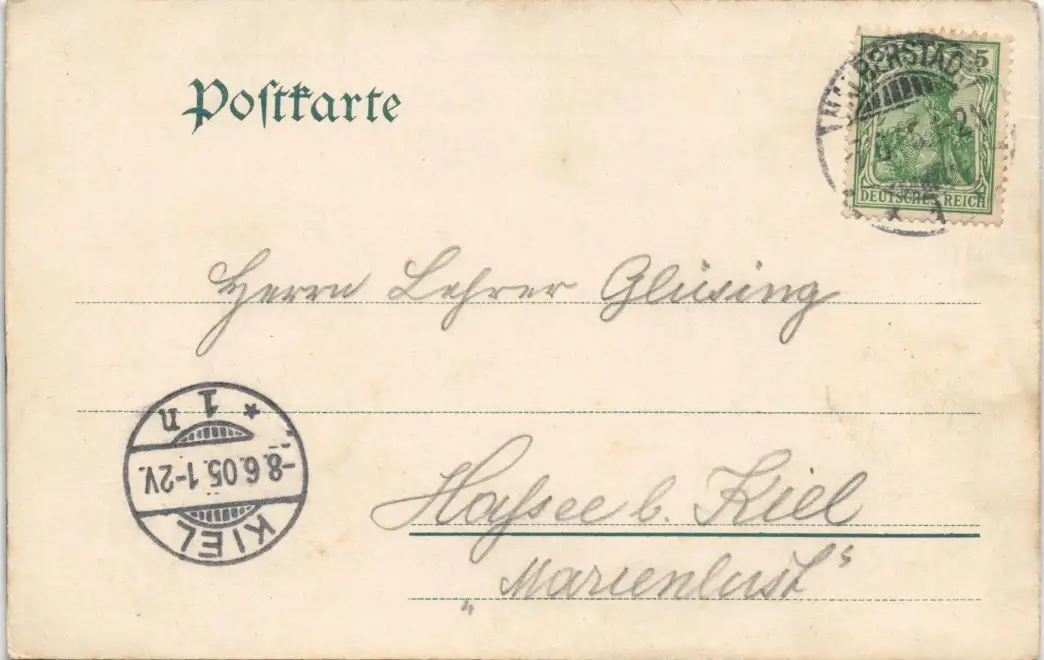 Postkarte
5
HALBERSTADT
DEUTSCHES REICH
Herrn Lehrer Glüsing
Haſsee b. Kiel
„Marienlust“
KIEL
-8.6.05.1-2V.
* 1 n